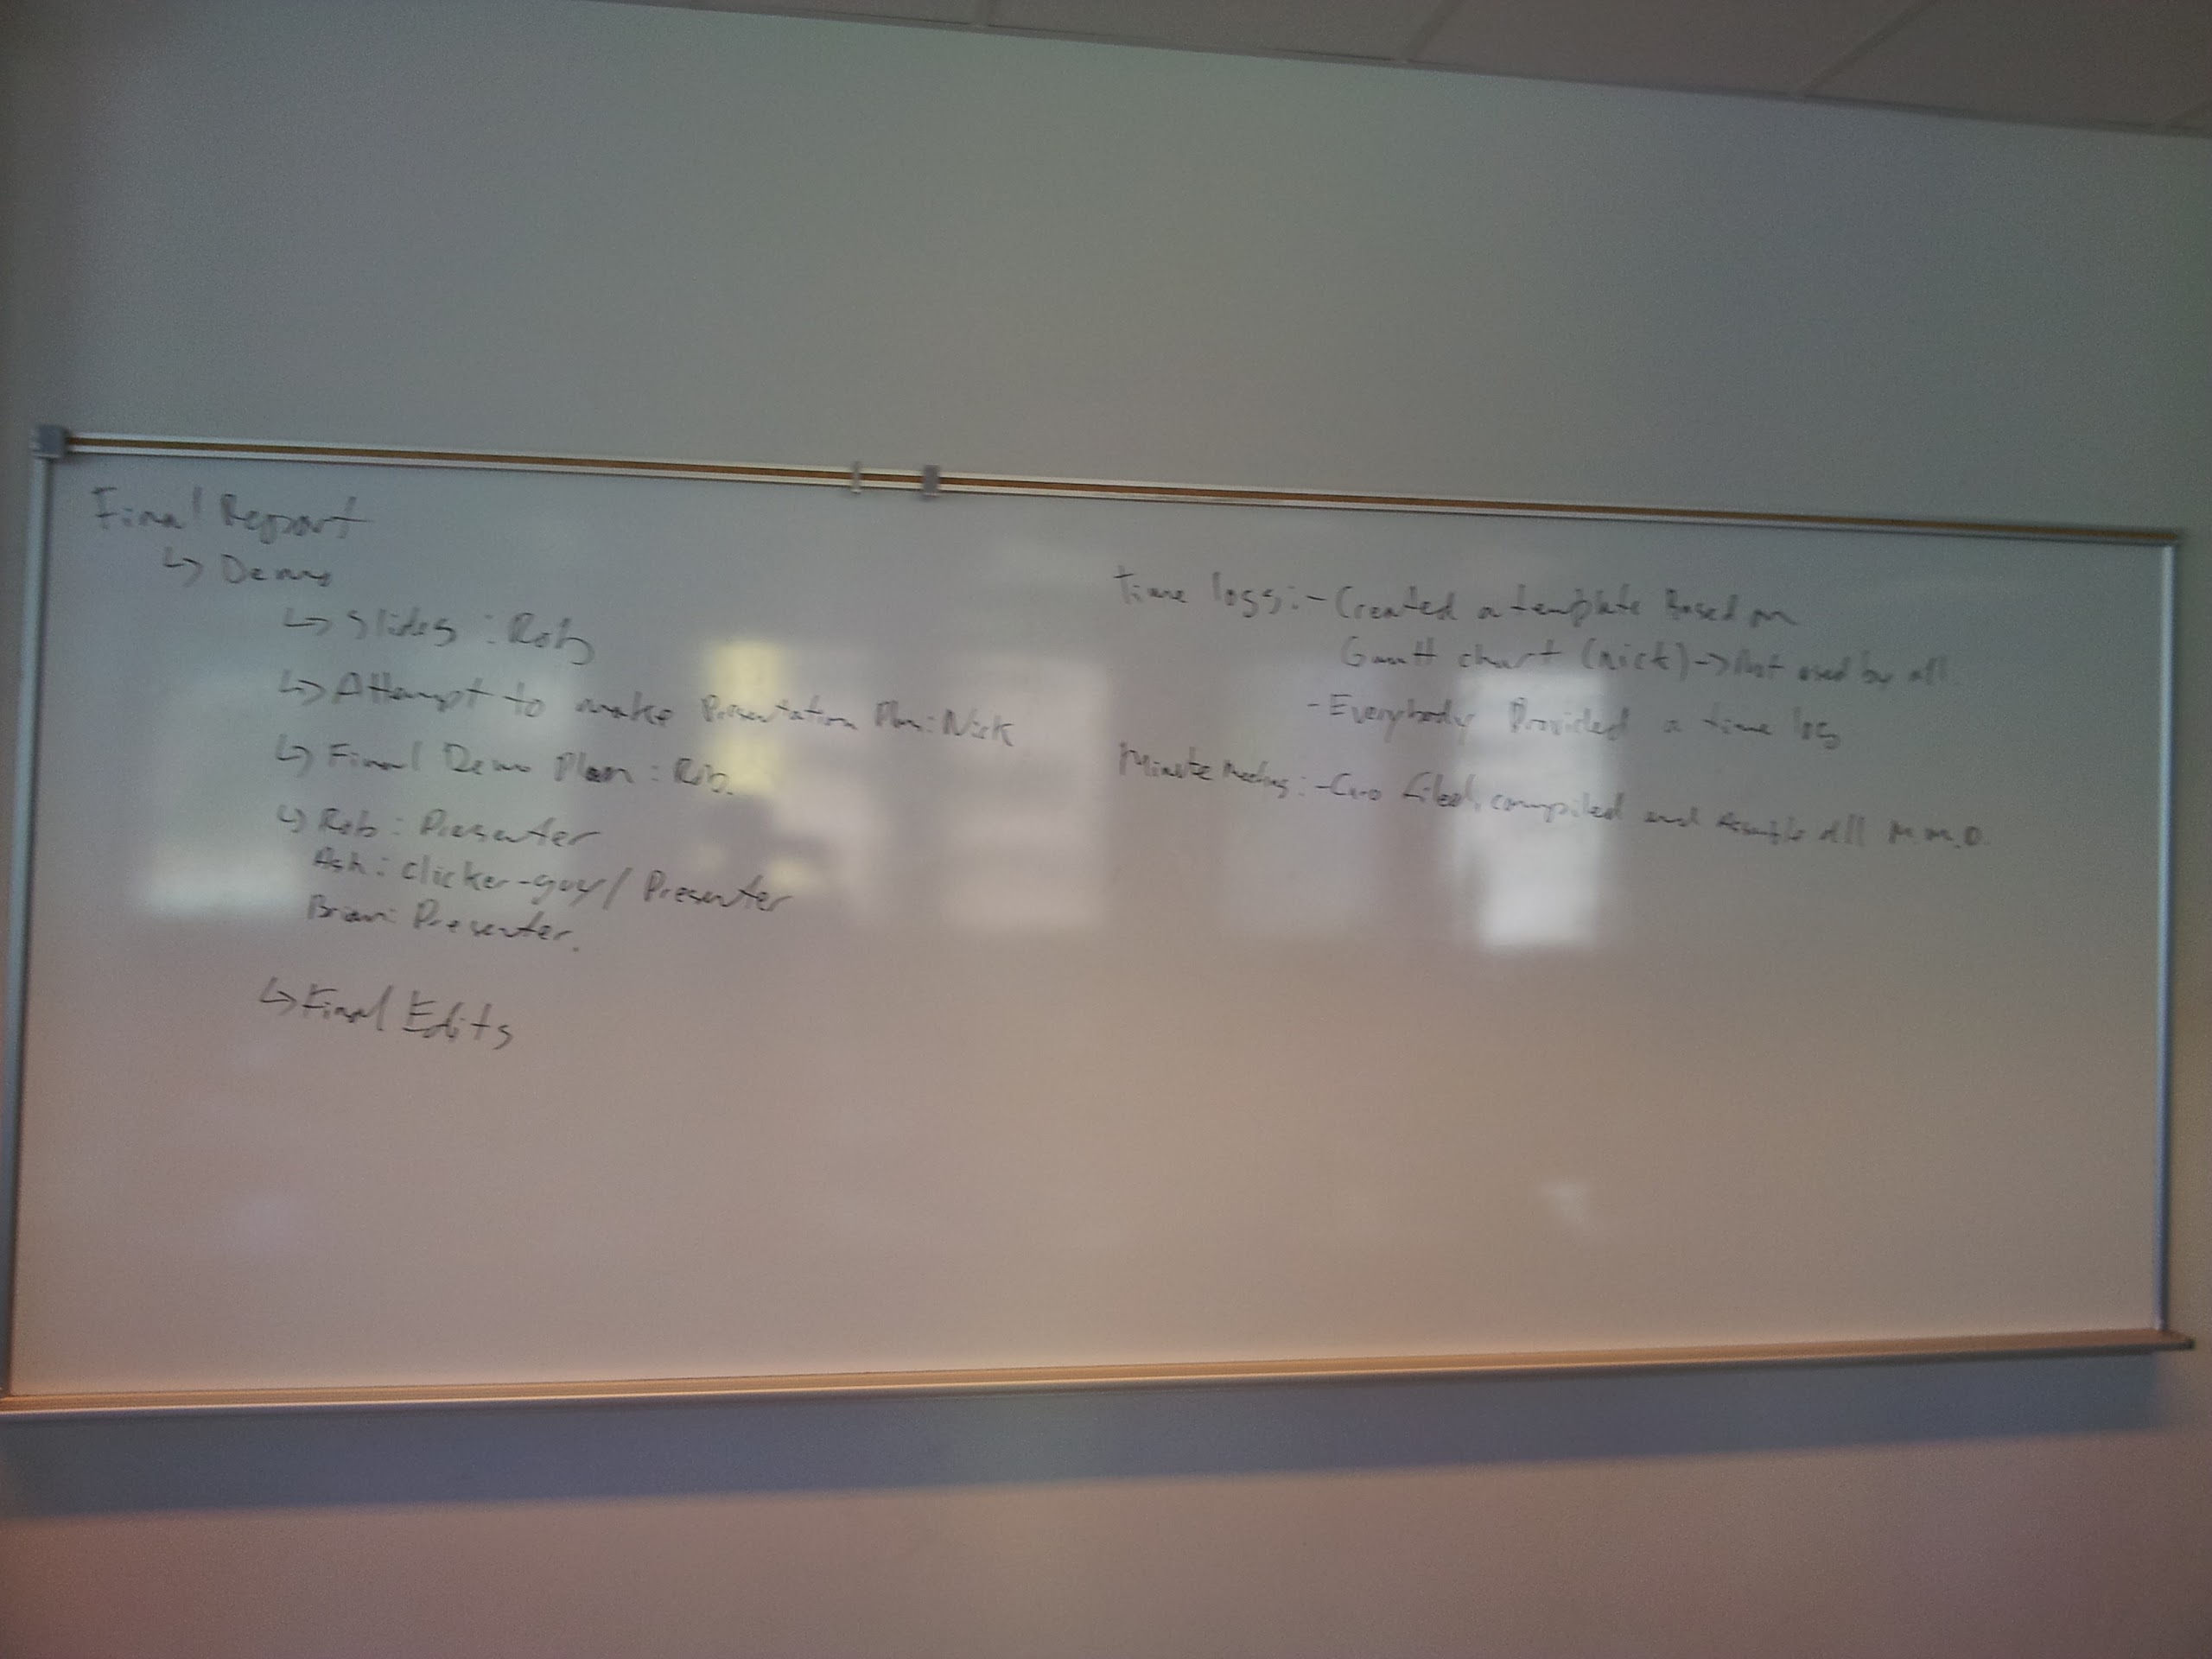 Final Report
↳ Demo
↳ Slides : Rob
↳ Attempt to make Presentation Plan: Nick
↳ Final Demo Plan : Rob.
↳ Rob : Presenter
Ash : clicker-guy / Presenter
Brian: Presenter.
↳ Final Edits
Time logs: - Created a template Based on
Gantt chart (nick) -> Not used by all
- Everybody Provided a time log
Minute Meetings : - filed, compiled and Assemble all M.M.O.